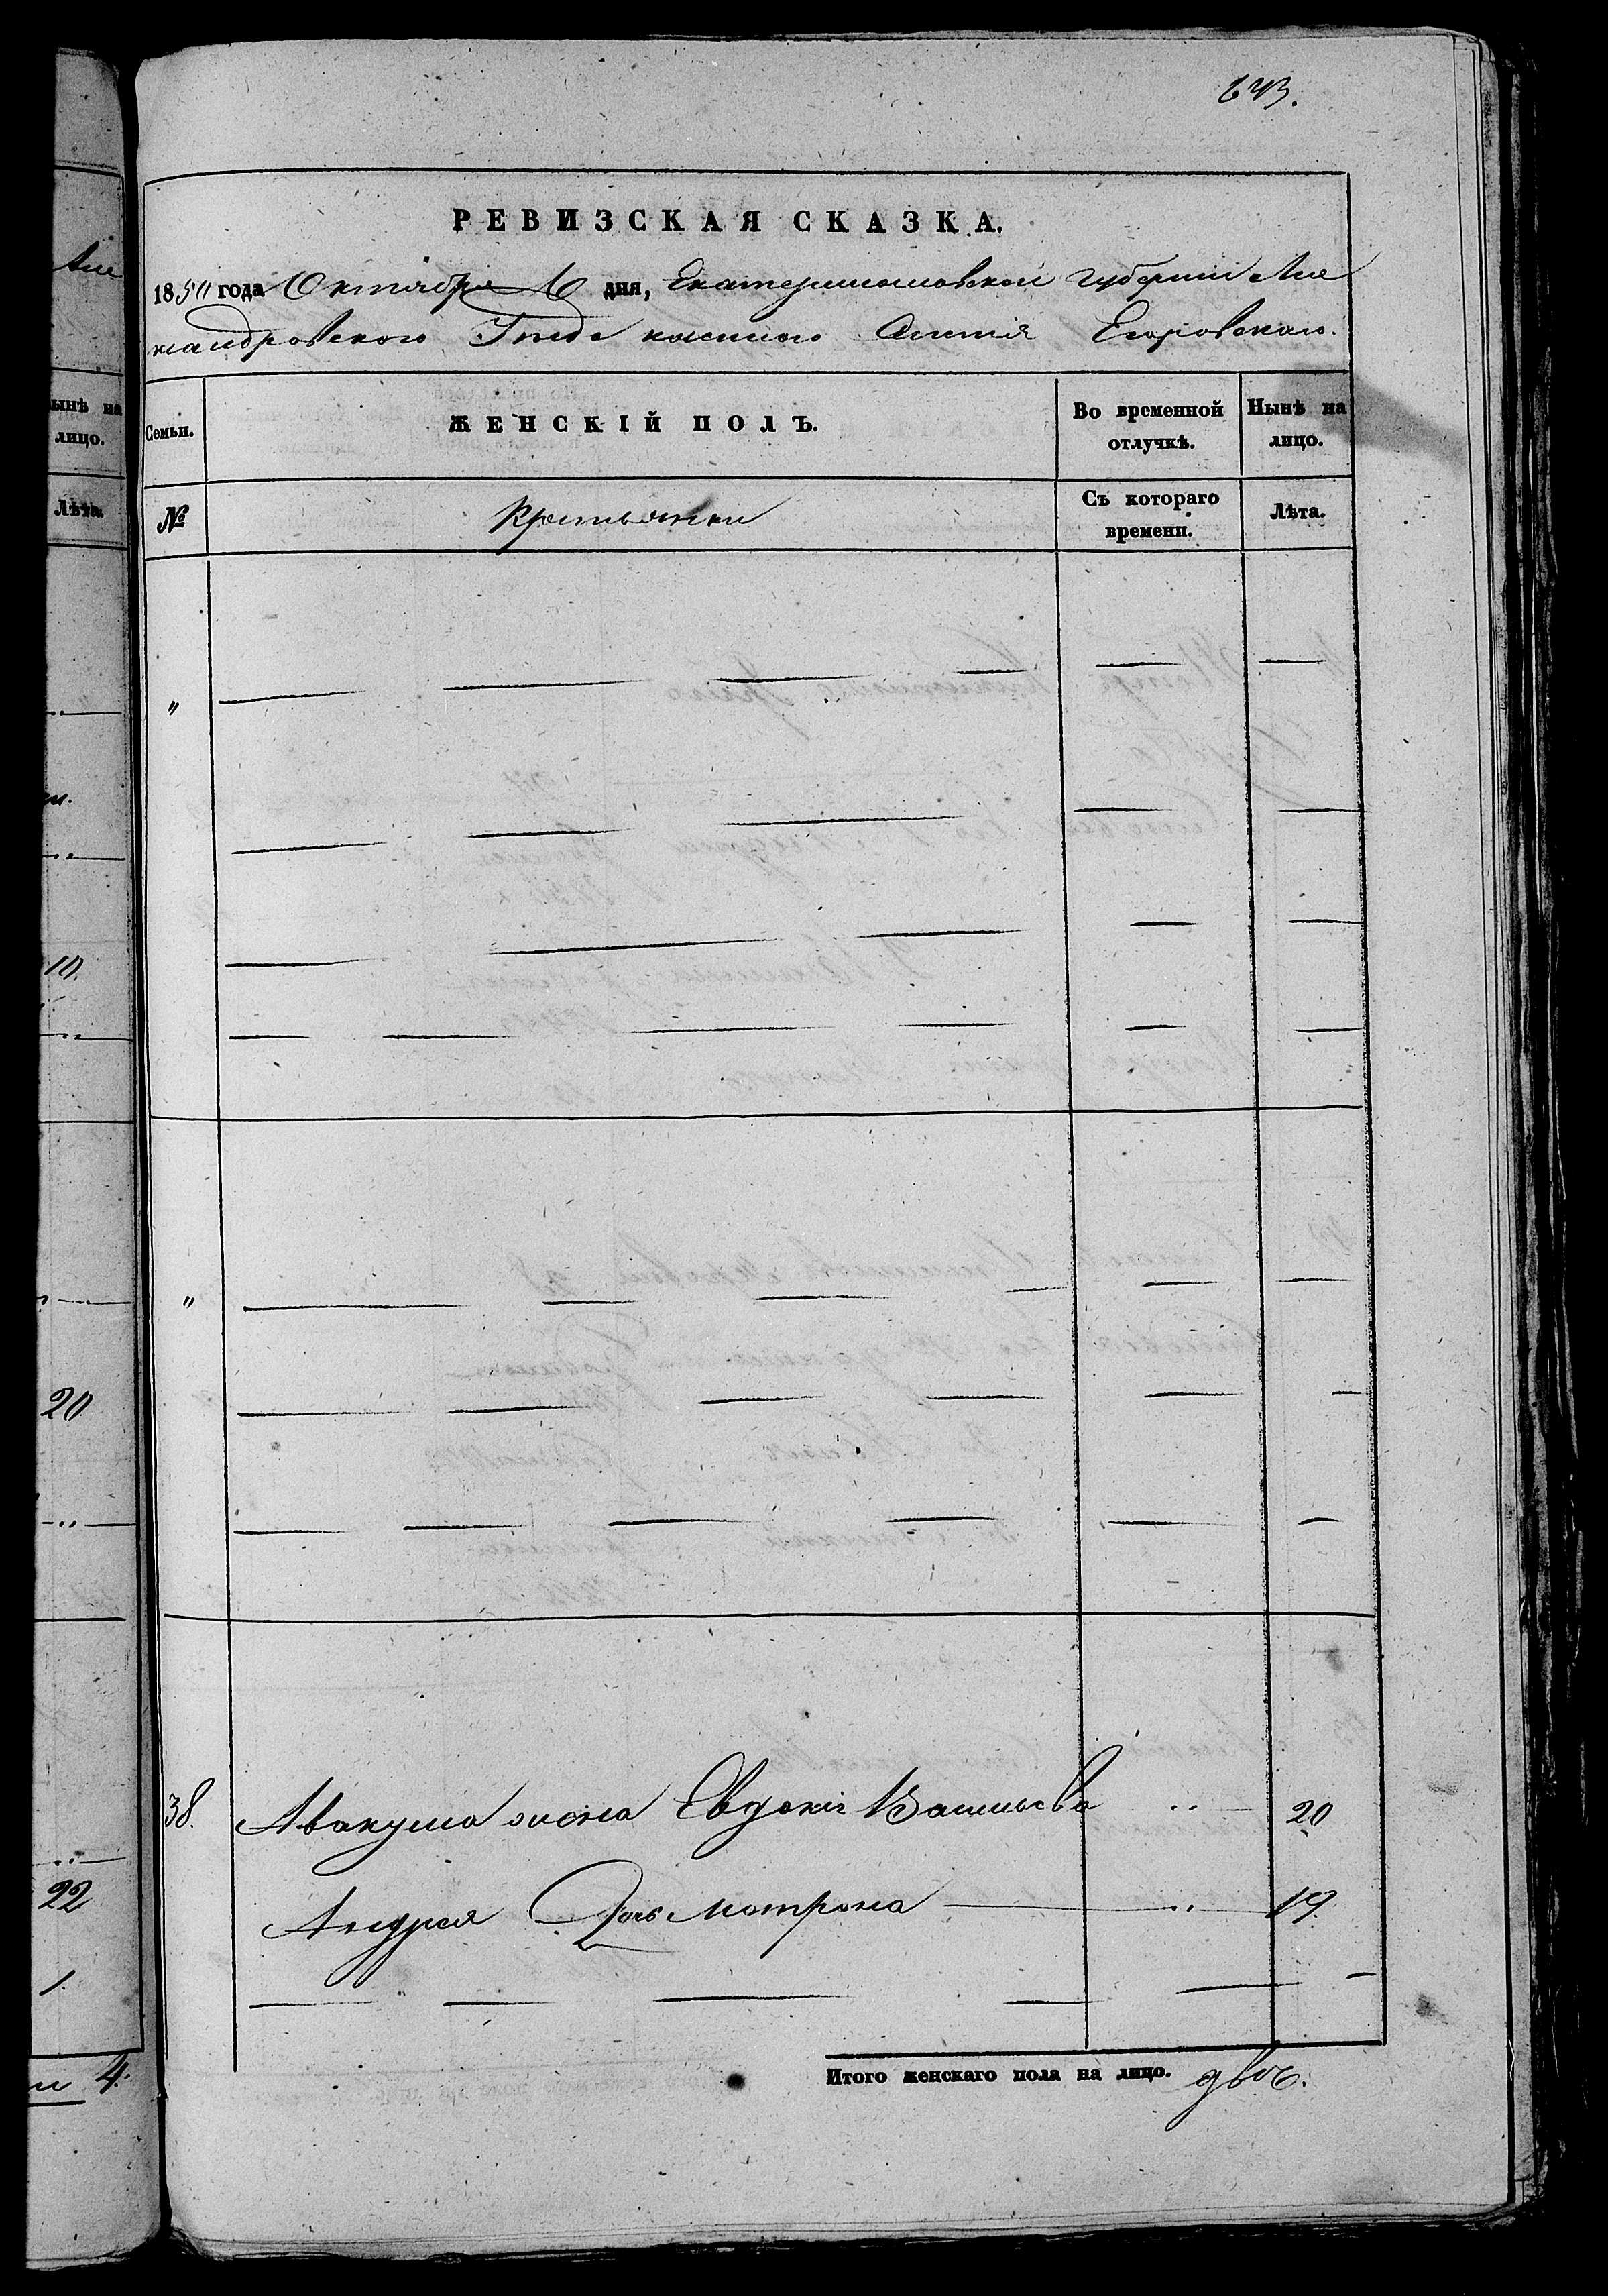 643.
РЕВИЗСКАЯ СКАЗКА.
1850 года Октября 6 дня, Екатеринославской губернии Але
ксандровского Уезда имения Егоровскаго.
Семьи. ЖЕНСКІЙ ПОЛЪ. Во временной отлучкѣ. Нынѣ на лицо.
№ Крестьянки Съ котораго времени. Лѣта.
"
"
38. Авакума жена Евдокия Васильева 20
Андрея Дочь Мотрона 19.
Итого женскаго пола на лицо. двѣ.
Але
ынѣ на
лицо.
Лѣта.
10.
20
22
1.
и 4.